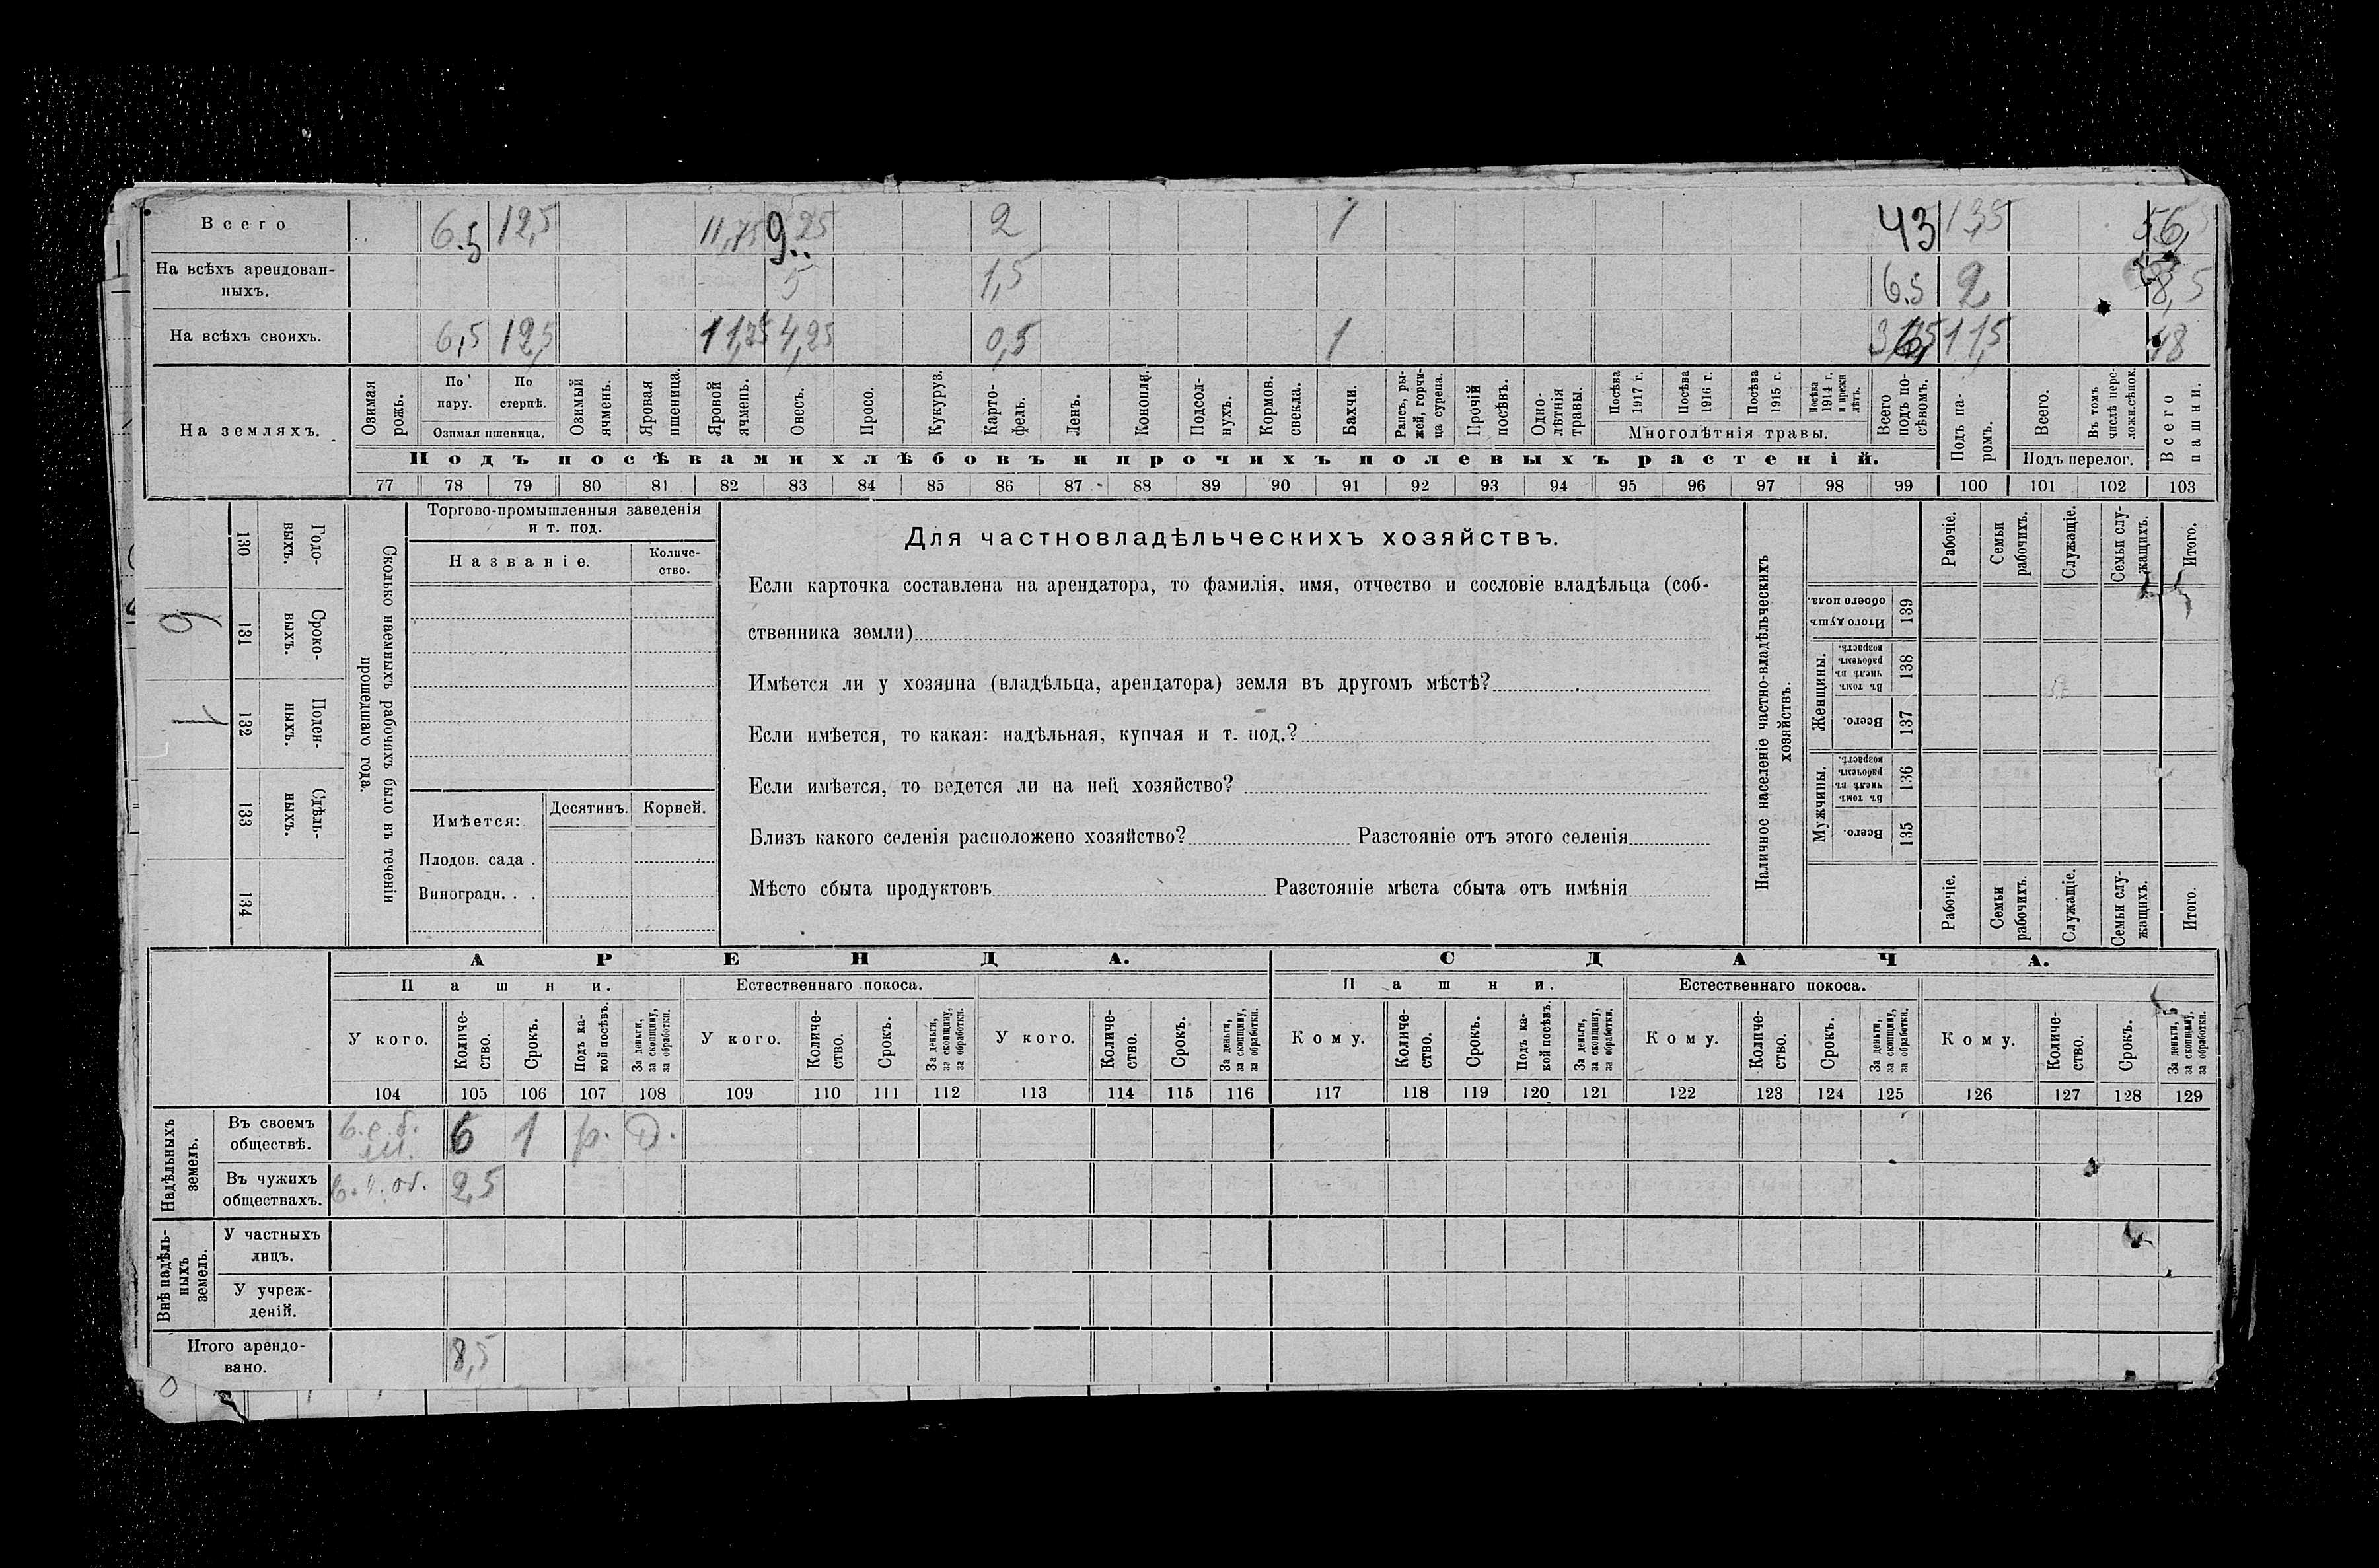 Всего 6.5 12,5 11,75 9.25 2 1 43 13,5 56,5
На всѣхъ арендован-
ныхъ. 5 1,5 6.5 2 8,5
На всѣхъ своихъ. 6,5 12,5 4,25 0,5 1 11,5 48
На земляхъ.
Озимая рожь.
По пару.
По стернѣ.
Озимая пшеница.
Озимый ячмень.
Яровая пшеница.
Яровой ячмень.
Овесъ.
Просо.
Кукуруз.
Карто-
фель.
Ленъ.
Конопля.
Подсол-
нухъ.
Кормов.
свекла.
Бахчи.
Рапсъ, ры-
жей, горчи-
ца сурепа.
Прочій
посѣвъ.
Одно-
лѣтнія
травы.
Посѣва
1917 г.
Посѣва
1916 г.
Посѣва
1915 г.
Посѣва
1914 г.
и прежн
лѣтъ.
Многолѣтнія травы.
Всего
подъ по-
сѣвомъ.
Подъ посѣвами хлѣбовъ и прочихъ полевыхъ растеній.
Подъ па-
ромъ.
Всего.
Въ томъ
числѣ пере-
ложн.сѣнок.
Подъ перелог.
Всего
пашни.
77 78 79 80 81 82 83 84 85 86 87 88 89 90 91 92 93 94 95 96 97 98 99 100 101 102 103
130
Годо-
выхъ.
9
131
Сроко-
выхъ.
1
132
Поден-
ныхъ.
133
Сдѣль-
ныхъ.
134
Сколько наемныхъ рабочихъ было въ теченіи
прошедшаго года.
Торгово-промышленныя заведенія
и т. под.
Названіе.
Количе-
ство.
Имѣется:
Десятинъ.
Корней.
Плодов. сада .
Виноградн. . .
Для частновладѣльческихъ хозяйствъ.
Если карточка составлена на арендатора, то фамилія, имя, отчество и сословіе владѣльца (соб-
ственника земли)
Имѣется ли у хозяина (владѣльца, арендатора) земля въ другомъ мѣстѣ?
Если имѣется, то какая: надѣльная, купчая и т. под.?
Если имѣется, то ведется ли на ней хозяйство?
Близъ какого селенія расположено хозяйство? Разстояніе отъ этого селенія
Мѣсто сбыта продуктовъ Разстояніе мѣста сбыта отъ имѣнія
Наличное населеніе частно-владѣльческихъ
хозяйствъ.
Рабочіе.
Семьи
рабочихъ.
Служащіе.
Семьи слу-
жащихъ.
Итого.
Итого душъ
обоего пола.
139
Женщины.
Въ томъ
числѣ въ
рабочемъ
возрастѣ.
138
Всего.
137
Мужчины.
Въ томъ
числѣ въ
рабочемъ
возрастѣ.
136
Всего.
135
Рабочіе.
Семьи
рабочихъ.
Служащіе.
Семьи слу-
жащихъ.
Итого.
АРЕНДА. СДАЧА.
Пашни. Естественнаго покоса. Пашни. Естественнаго покоса.
У кого.
Количе-
ство.
Срокъ.
Подъ ка-
кой посѣвъ.
За деньги,
за скопщину,
за обработки.
У кого.
Количе-
ство.
Срокъ.
За деньги,
за скопщину,
за обработки.
У кого.
Количе-
ство.
Срокъ.
За деньги,
за скопщину,
за обработки.
Кому.
Количе-
ство.
Срокъ.
Подъ ка-
кой посѣвъ.
За деньги,
за скопщину,
за обработки.
Кому.
Количе-
ство.
Срокъ.
За деньги,
за скопщину,
за обработки.
Кому.
Количе-
ство.
Срокъ.
За деньги,
за скопщину,
за обработки.
104 105 106 107 108 109 110 111 112 113 114 115 116 117 118 119 120 121 122 123 124 125 126 127 128 129
Надѣльныхъ
земель.
Въ своемъ
обществѣ. 6 1 р. Д.
Въ чужихъ
обществахъ. 2,5
Внѣ надѣль-
ныхъ
земель.
У частныхъ
лицъ.
У учреж-
деній.
Итого арендо-
вано. 8,5